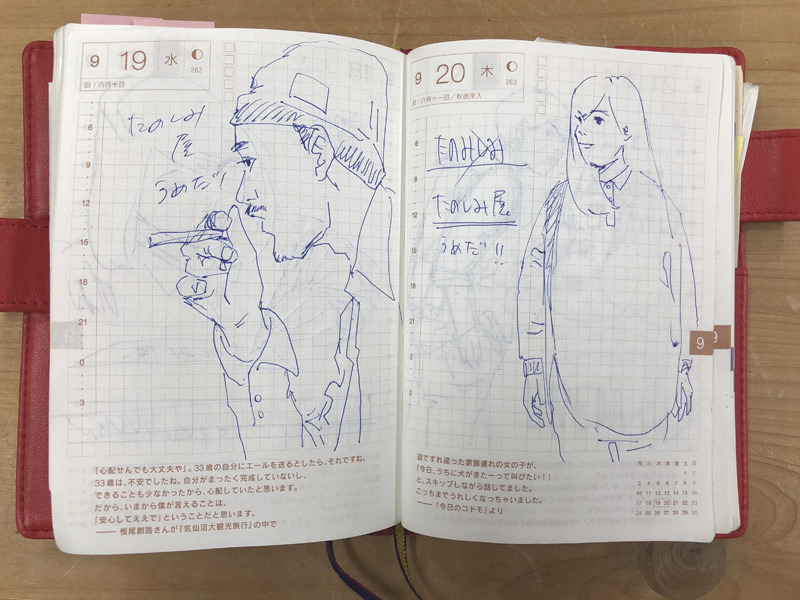 9 19 水
262
旧：八月十日
たのしみ
屋
うめだ！
6
9
12
15
18
21
0
3
「心配せんでも大丈夫や」。33歳の自分にエールを送るとしたら、それですね。
33歳は、不安でしたね。自分がまったく完成していないし、
できることも少なかったから、心配していたと思います。
だから、いまから僕が言えることは、
「安心してええで」ということだと思います。
——板尾創路さんが『気仙沼大観光旅行』の中で
9 20 木
263
旧：八月十一日／彼岸入
たのみしみ
たのしみ屋
うめだ!!
6
9
12
15
18
21
0
3
9
9
道ですれ違った家族連れの女の子が、
「今日、うちに犬がきたーって叫びたい！」
と、スキップしながら話してました。
こっちまでうれしくなっちゃいました。
——『今日のコドモ』より
月 火 水 木 金 土 日
1 2
3 4 5 6 7 8 9
10 11 12 13 14 15 16
17 18 19 20 21 22 23
24 25 26 27 28 29 30